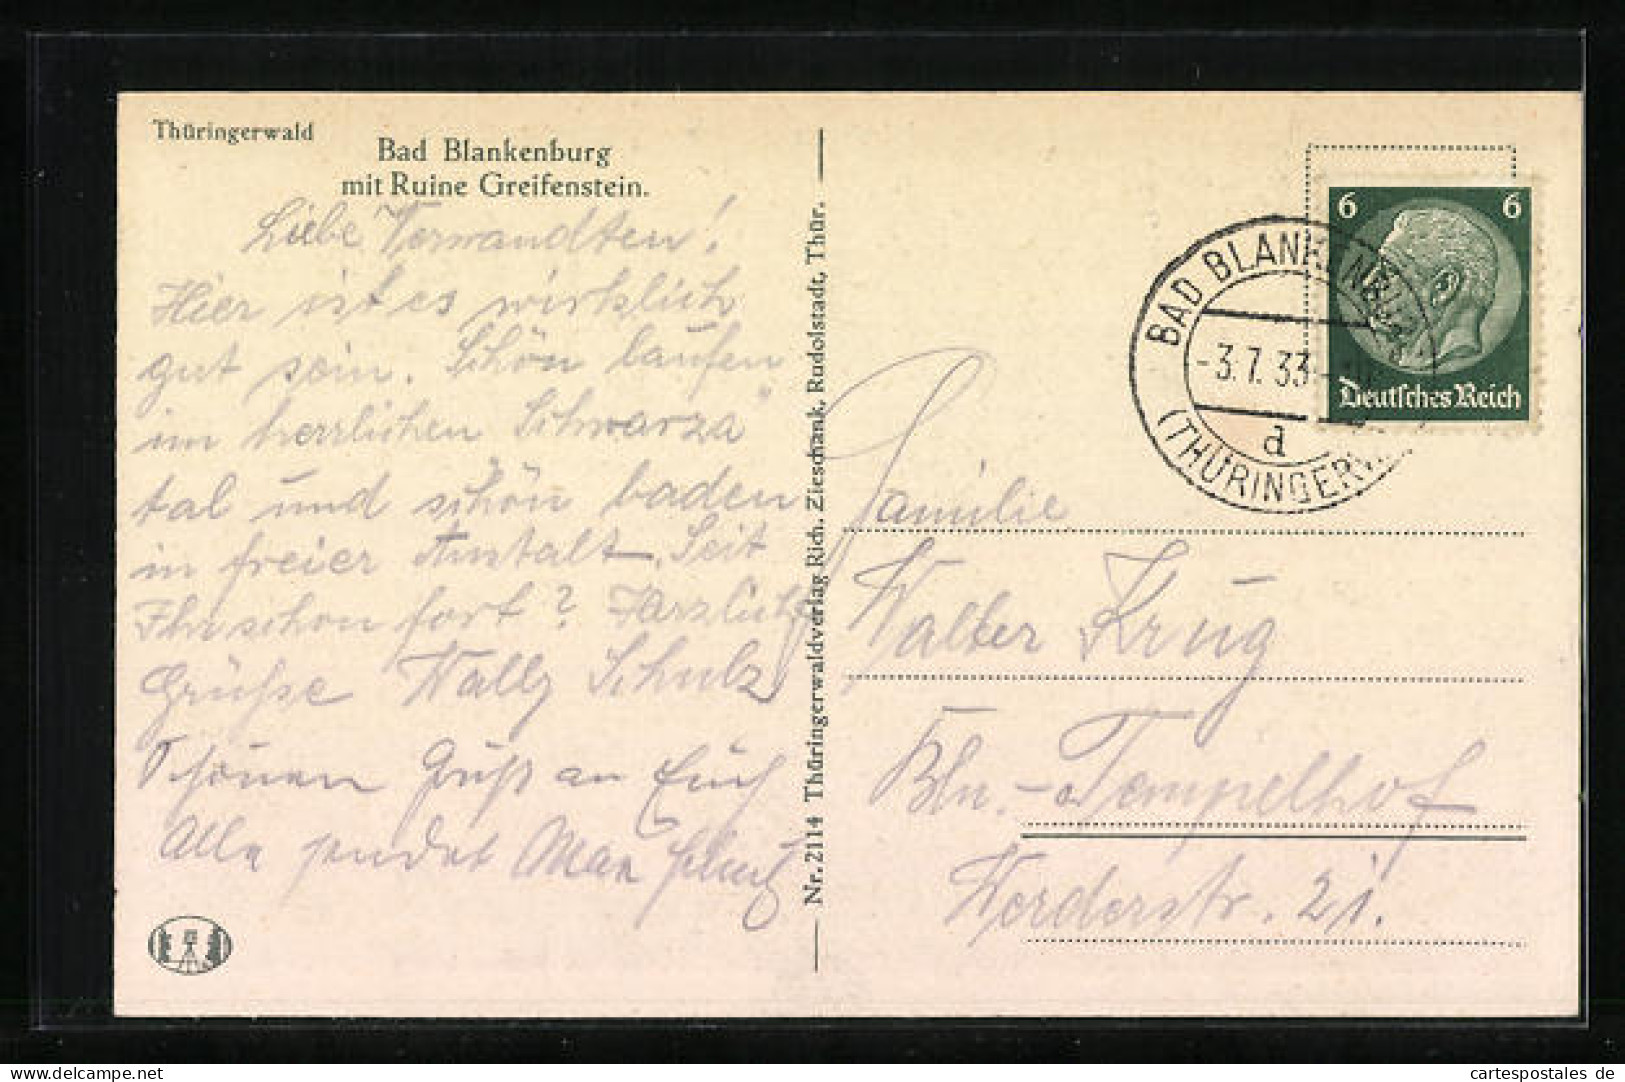 Thüringerwald
Bad Blankenburg
mit Ruine Greifenstein.
Liebe Verwandten!
Hier ist es wirklich
gut sein. Schön laufen
im herrlichen Schwarza
tal und schön baden
in freier Anstalt. Seid
Ihr schon fort? Herzliche
Grüße Wally Schulz
Schönen Gruß an Euch
Alle sendet Max Schulz
Nr. 2114 Thüringerwaldverlag Rich. Zieschank, Rudolstadt, Thür.
BAD BLANKENBURG
-3.7.33
d
(THÜRINGERW
6 6
Deutsches Reich
Familie
Walter Krüg
Bln.-Tempelhof
Werderstr. 21.
www.cartespostales.de
cartespostales de